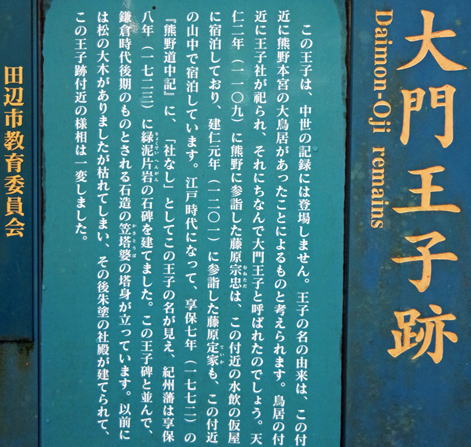 大門王子跡
Daimon-Oji remains
この王子は、中世の記録には登場しません。王子の名の由来は、この付
近に熊野本宮の大鳥居があったことによるものと考えられます。鳥居の付
近に王子社が祀られ、それにちなんで大門王子と呼ばれたのでしょう。天
仁二年（一一〇九）に熊野に参詣した藤原宗忠は、この付近の水飲の仮屋
に宿泊しており、建仁元年（一二〇一）に参詣した藤原定家も、この付近
の山中で宿泊しています。江戸時代になって、享保七年（一七二二）の
『熊野道中記』に、「社なし」としてこの王子の名が見え、紀州藩は享保
八年（一七二三）に緑泥片岩の石碑を建てました。この王子碑と並んで、
鎌倉時代後期のものとされる石造の笠塔婆の塔身が立っています。以前に
は松の大木がありましたが枯れてしまい、その後朱塗の社殿が建てられて、
この王子跡付近の様相は一変しました。
田辺市教育委員会